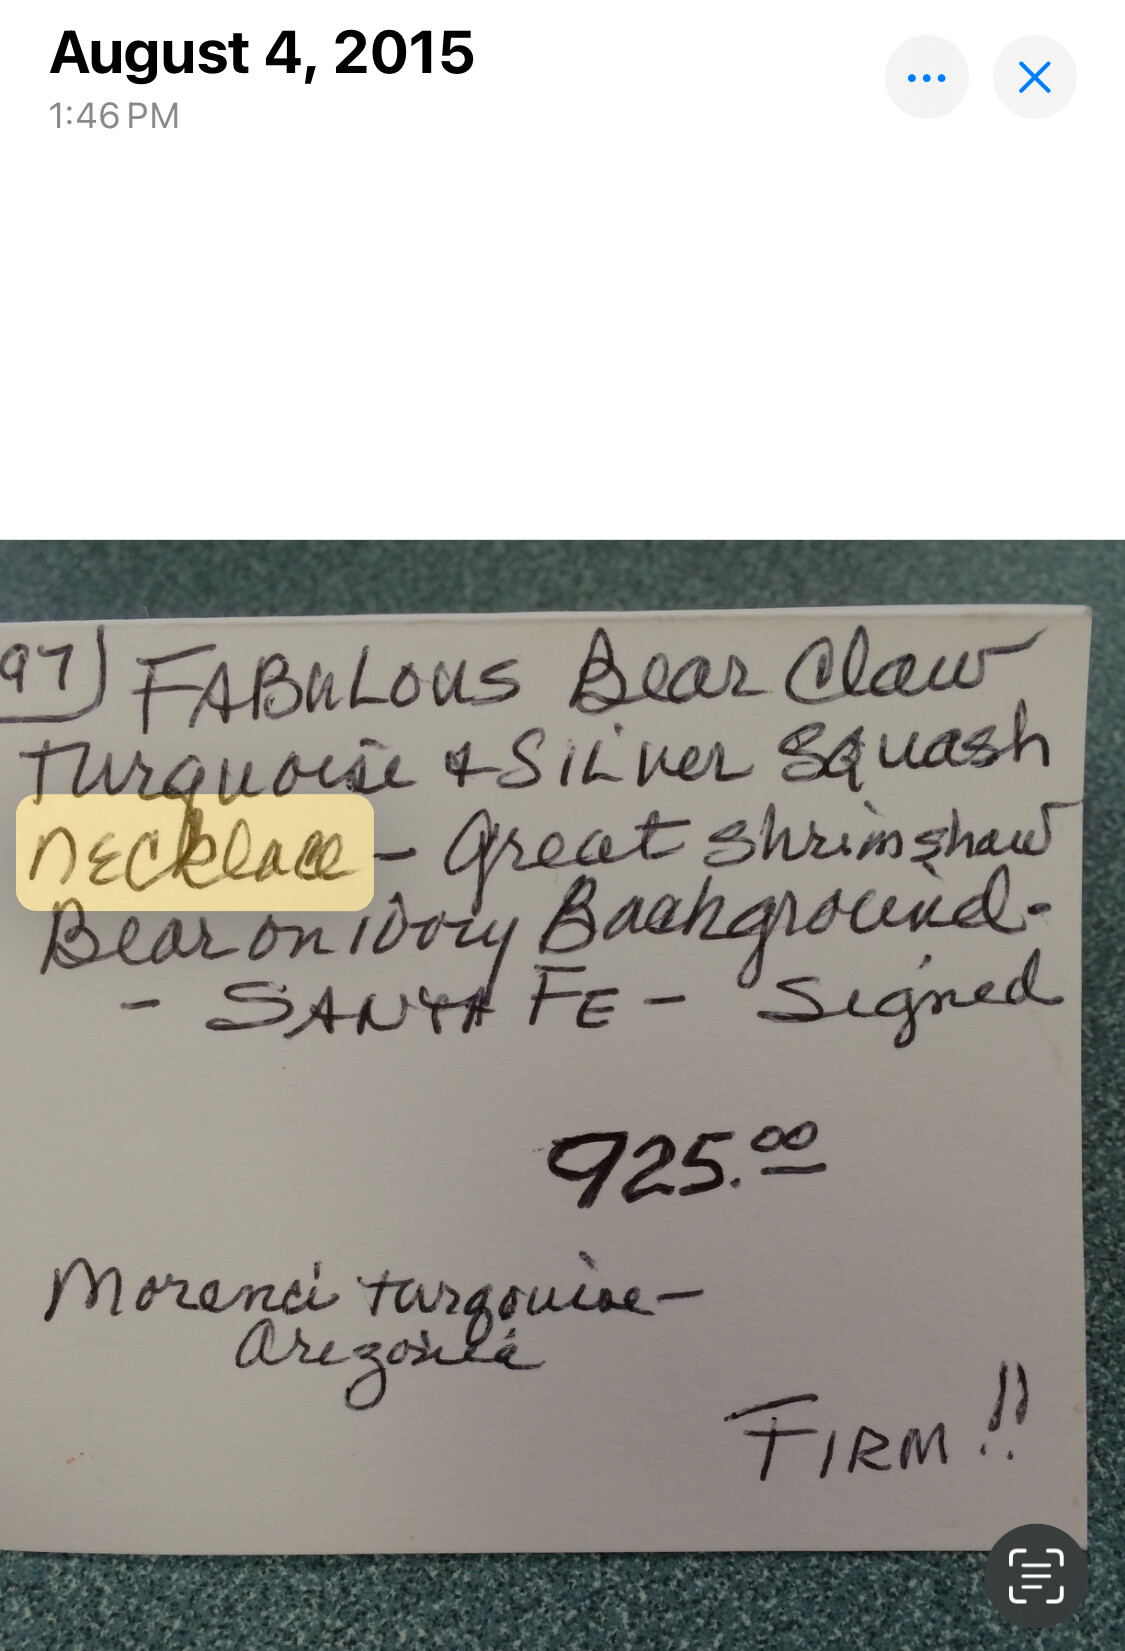 August 4, 2015
1:46 PM
97) FABuLous Bear Claw
turquoise & SiLver Squash
necklace - Great shrimshaw
Bear on ivory Background -
- SANTA FE - Signed
925.00
Morenci turqouise -
Arizonia
FIRM !!